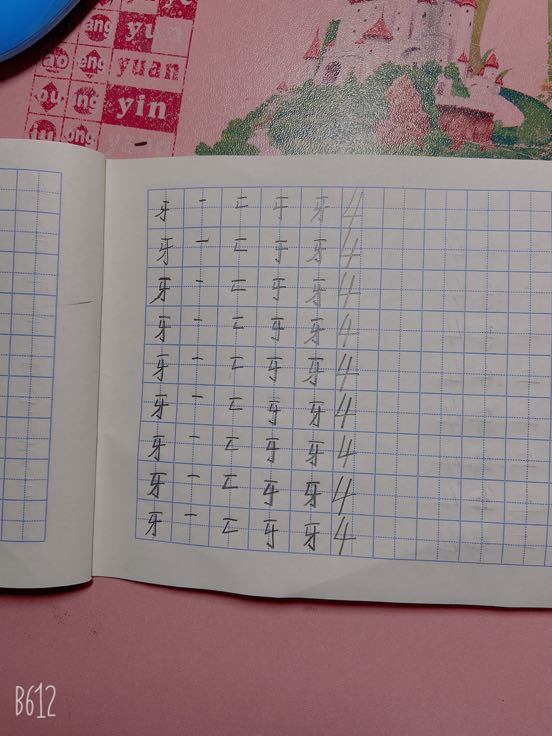 yu
ang yun
ao eng yuan
ou ing yin
iu ong
牙 一 二 于 牙 4
牙 一 二 于 牙 4
牙 一 二 于 牙 4
牙 一 二 牙 牙 4
牙 一 二 牙 牙 4
牙 一 二 牙 牙 4
牙 一 二 牙 牙 4
牙 一 二 牙 牙 4
牙 一 二 牙 牙 4
B612